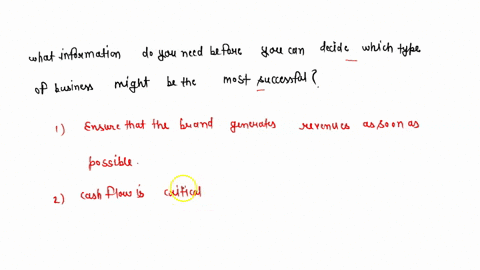 what information do you need before you can decide which type
of business might be the most successful?
1) Ensure that the brand generates revenues as soon as
possible.
2) cash flow is critical